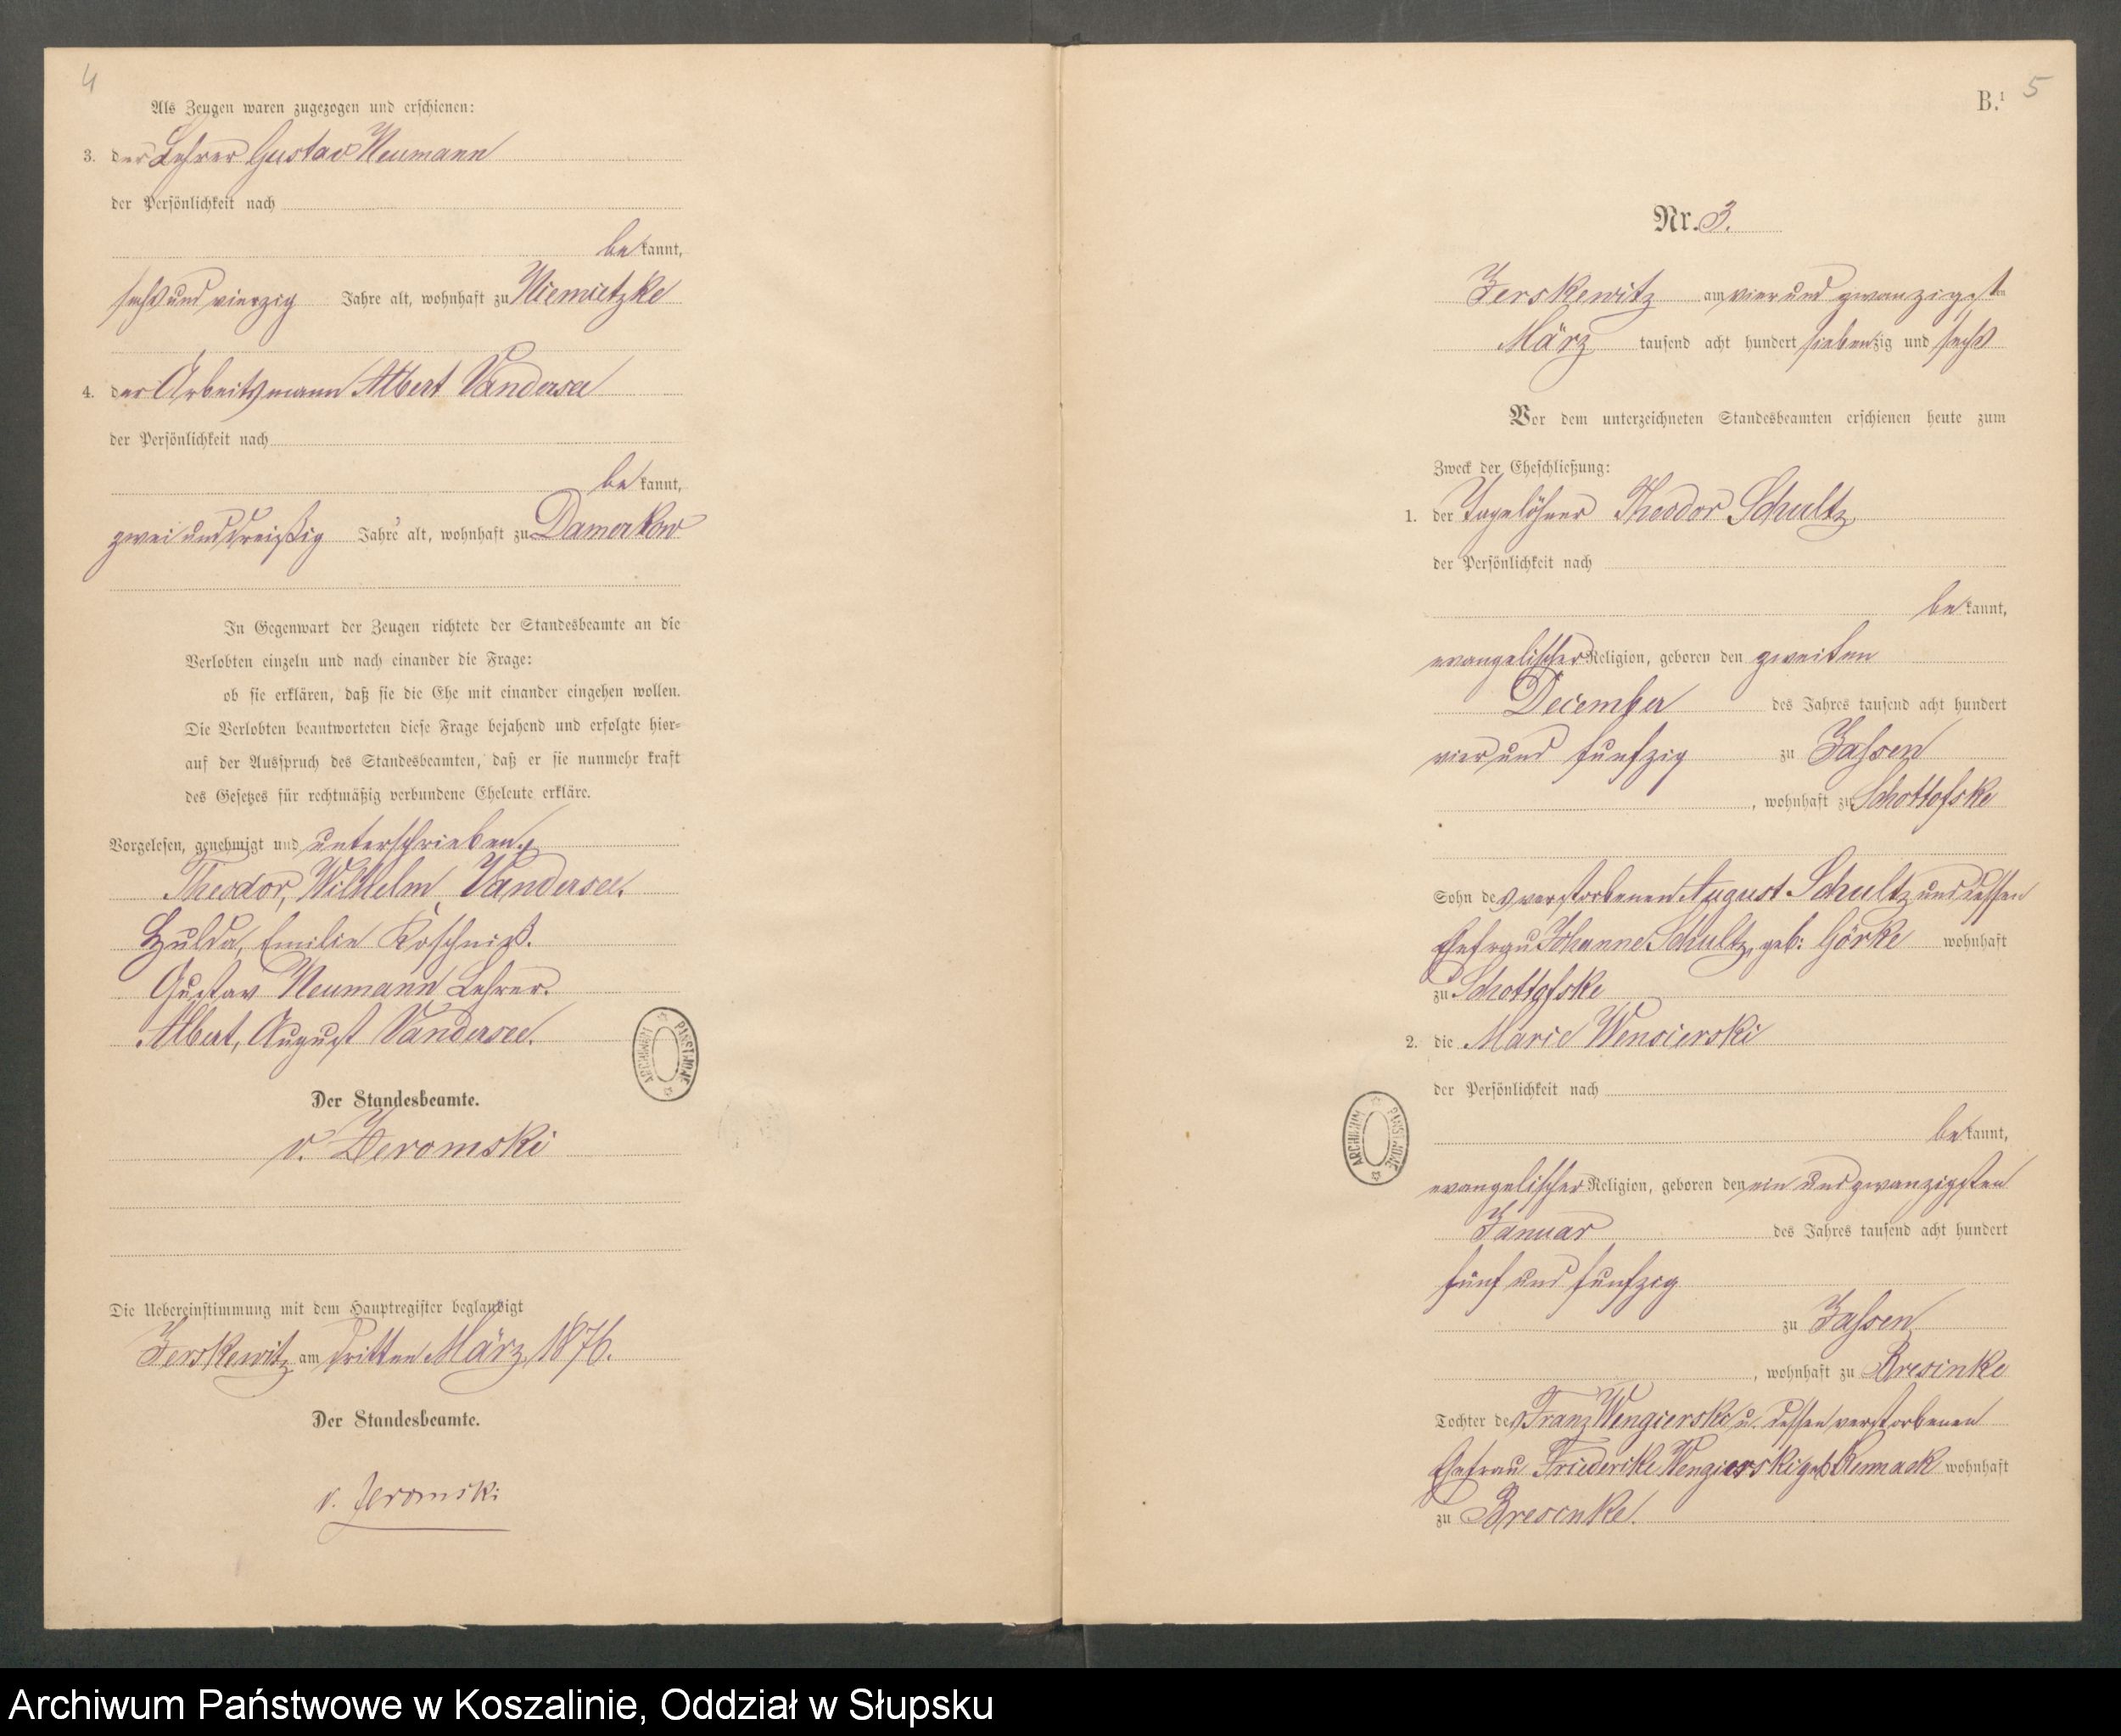 4
Als Zeugen waren zugezogen und erschienen:
3. der Lehrer Gustav Neumann
der Persönlichkeit nach
bekannt,
sechs und vierzig Jahre alt, wohnhaft zu Niemietzke
4. der Arbeitsmann Albert Vandersee
der Persönlichkeit nach
bekannt,
zwei und dreißig Jahre alt, wohnhaft zu Damerkow
In Gegenwart der Zeugen richtete der Standesbeamte an die
Verlobten einzeln und nach einander die Frage:
ob sie erklären, daß sie die Ehe mit einander eingehen wollen.
Die Verlobten beantworteten diese Frage bejahend und erfolgte hier-
auf der Ausspruch des Standesbeamten, daß er sie nunmehr kraft
des Gesetzes für rechtmäßig verbundene Eheleute erkläre.
Vorgelesen, genehmigt und unterschrieben.
Theodor, Wilhelm Vandersee.
Hulda, Emilie Koschnitz.
Gustav Neumann Lehrer.
Albert, August Vandersee.
ARCHIWUM PAŃSTWOWE
Der Standesbeamte.
v. Zeromski
Die Uebereinstimmung mit dem Hauptregister beglaubigt
Jerskewitz am dritten März 1876.
Der Standesbeamte.
v. Zeromski
B.1 5
Nr. 3.
Jerskewitz am vier und zwanzigsten
März tausend acht hundert siebenzig und sechs
Vor dem unterzeichneten Standesbeamten erschienen heute zum
Zweck der Eheschließung:
1. der Tagelöhner Theodor Schultz
der Persönlichkeit nach
bekannt,
evangelischer Religion, geboren den zweiten
December des Jahres tausend acht hundert
vier und funfzig zu Jassen
, wohnhaft zu Schottofske
Sohn des verstorbenen August Schultz und dessen
Ehefrau Johanne Schultz, geb: Görke wohnhaft
zu Schottofske
2. die Marie Wensierski
der Persönlichkeit nach
bekannt,
ARCHIWUM PAŃSTWOWE
evangelischer Religion, geboren den ein und zwanzigsten
Januar des Jahres tausend acht hundert
fünf und funfzig
zu Jassen
, wohnhaft zu Bresinke
Tochter des Franz Wengierski u. dessen verstorbenen
Ehefrau Friederike Wengierski geb. wohnhaft
zu Bresinke.
Archiwum Państwowe w Koszalinie, Oddział w Słupsku